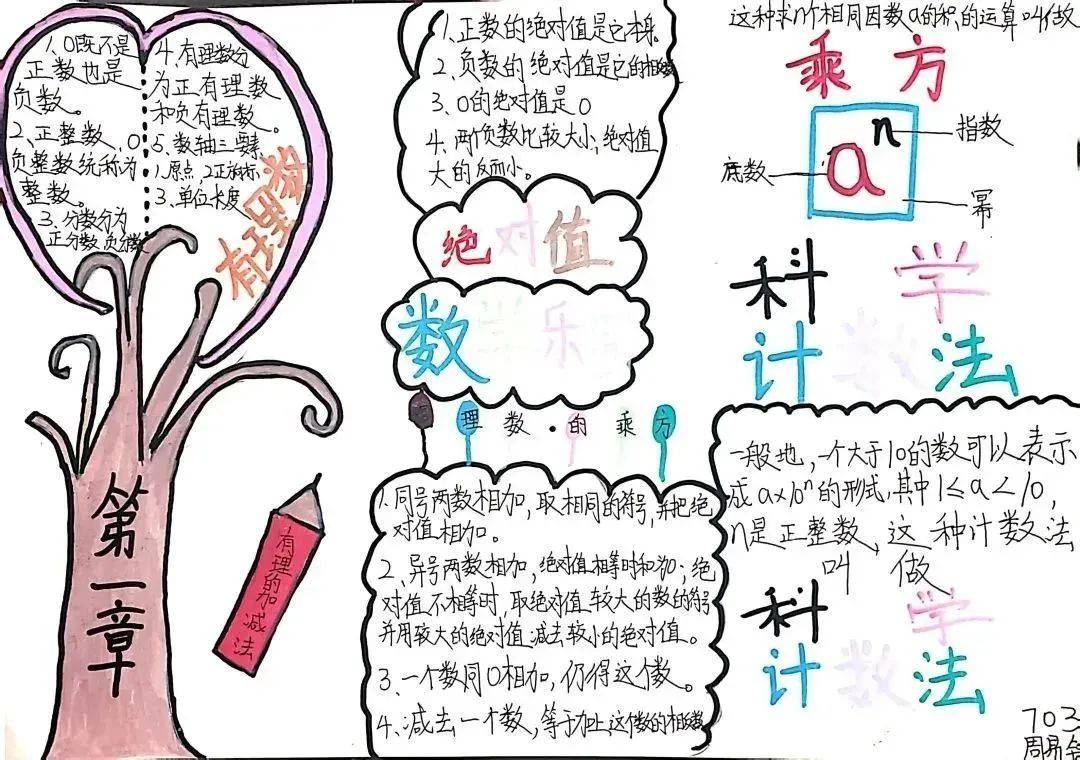 1、0既不是
正数也是
负数。
2、正整数、0
负整数统称为
整数。
3、分数分为
正分数负分数
4、有理数分
为正有理数
和负有理数。
5、数轴三要素
1.原点 2正方向
3、单位长度
有理数
第一章
有理的加减法
1.正数的绝对值是它本身。
2、负数的绝对值是它的相反数
3、0的绝对值是0
4、两个负数比较大小,绝对值
大的反而小。
绝对值
数学乐园
理数·的乘方
1.同号两数相加,取相同的符号,并把绝
对值相加。
2、异号两数相加,绝对值相等时和为0;绝
对值不相等时,取绝对值较大的数的符号
并用较大的绝对值减去较小的绝对值。
3、一个数同0相加,仍得这个数。
4、减去一个数,等于加上这个数的相反数
这种求n个相同因数a的积的运算叫做
乘方
aⁿ
指数
底数
幂
科学
计数法
一般地,一个大于10的数可以表示
成a×10ⁿ的形式,其中1≤a<10,
n是正整数,这种计数法
叫做
科学
计数法
703
周易